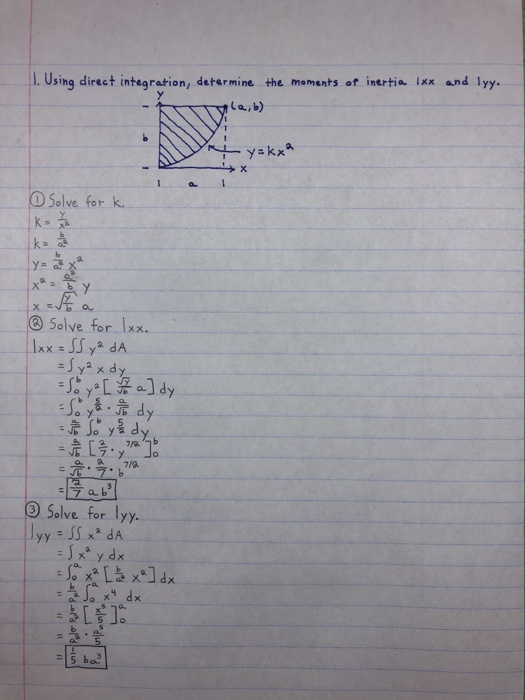 1. Using direct integration, determine the moments of inertia Ixx and Iyy.
y
(a,b)
b
y=kx²
x
a
① Solve for k.
k = y/x²
k = b/a²
y = b/a² x²
x² = a²/b y
x = √y/√b a
② Solve for Ixx.
Ixx = ∫∫ y² dA
= ∫ y² x dy
= ∫₀ᵇ y² [√y/√b a] dy
= ∫₀ᵇ y^(5/2) · a/√b dy
= a/√b ∫₀ᵇ y^(5/2) dy
= a/√b [2/7 · y^(7/2)]₀ᵇ
= a/√b · 2/7 · b^(7/2)
= 2/7 ab³
③ Solve for Iyy.
Iyy = ∫∫ x² dA
= ∫ x² y dx
= ∫₀ᵃ x² [b/a² x²] dx
= b/a² ∫₀ᵃ x⁴ dx
= b/a² [x⁵/5]₀ᵃ
= b/a² · a⁵/5
= 1/5 ba³